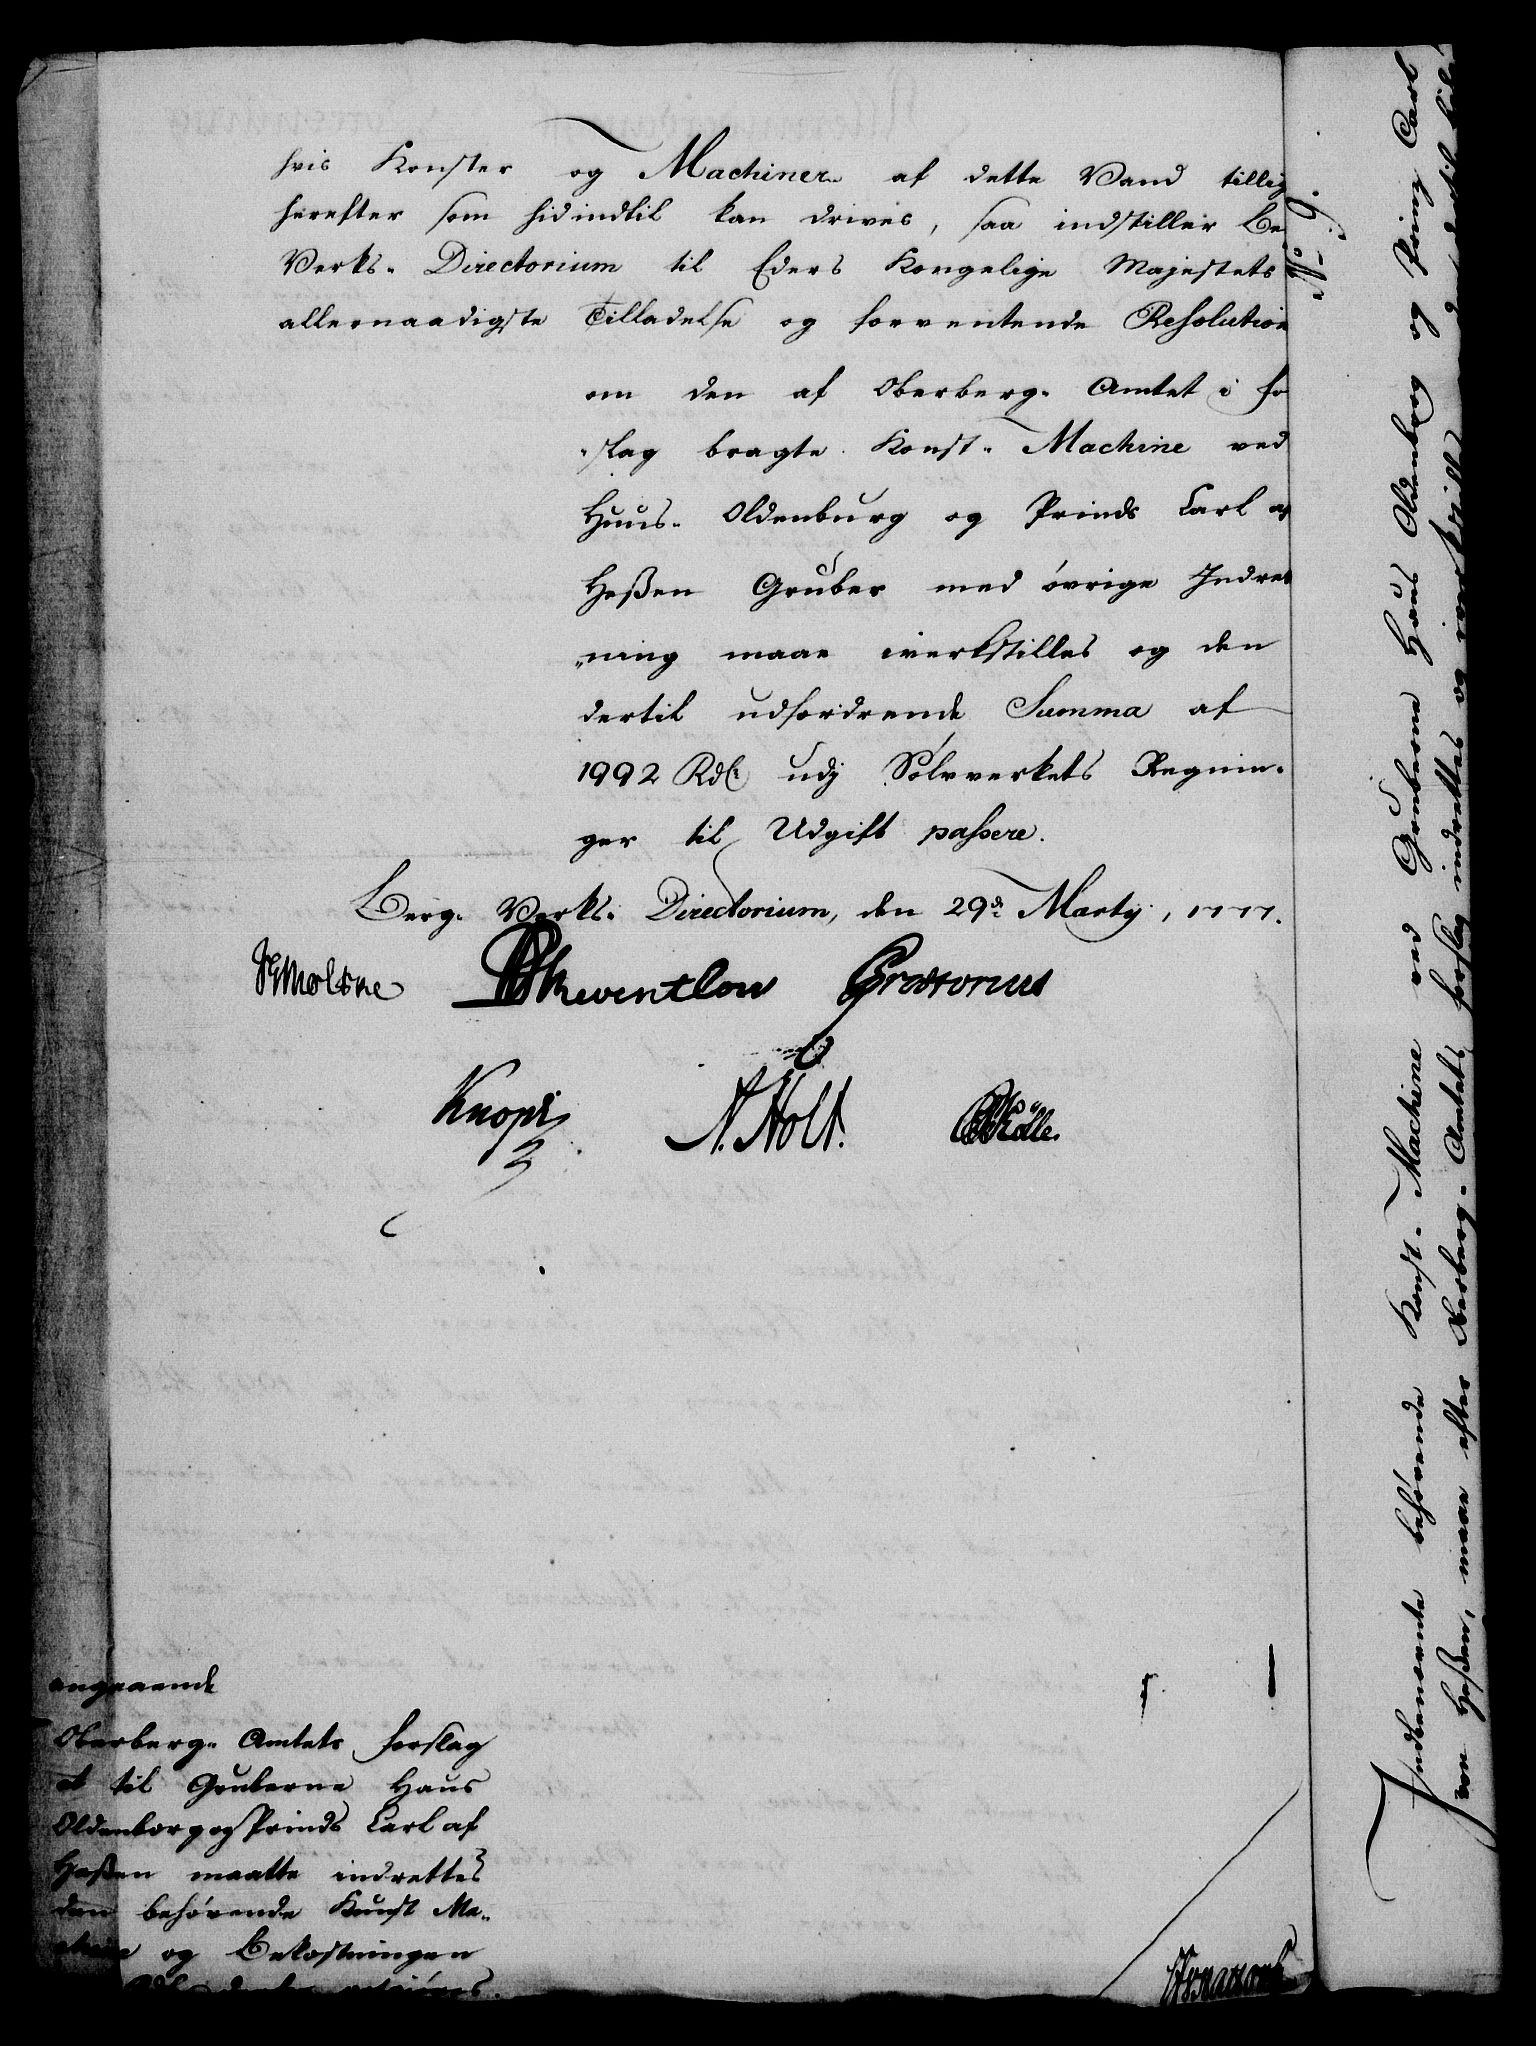 hvis Konster og Machiner af dette Vand tillig
herefter som hidindtil kan drives, saa indstiller Be
Verks- Directorium til Eders Kongelige Majestets
allernaadigste Tilladelse og forventende Resolution
om den af Oberberg- Amtet i fo
-slag bragte Konst- Machine ved
Huus- Oldenburg og Prinds Carl af
Heßen Gruber med øvrige Indret
-ning maae iverkstilles og den
dertil udfordrende Summa af
1992 Rdl: udj Sølvverkets Regnin-
ger til Udgift passere.
Berg- Verks- Directorium, den 29de Martij, 1777.
Moltke Reventlow Prætorius
Knoph N. Holt. Kölle.
angaaende
Oberberg- Amtets forslag
at til Gruberne Haus
Oldenborg og Prinds Carl af
Heßen maatte indrettes
den behørende Kunst Ma-
chine og Bekostningen
No 9.
Indbenævnte behørende Konst- Machine ved Gruberne Haus Oldenborg og Prinz Carl
von Heßen, maae efter Oberberg- Amtets forslag indrettes og iverkstilles